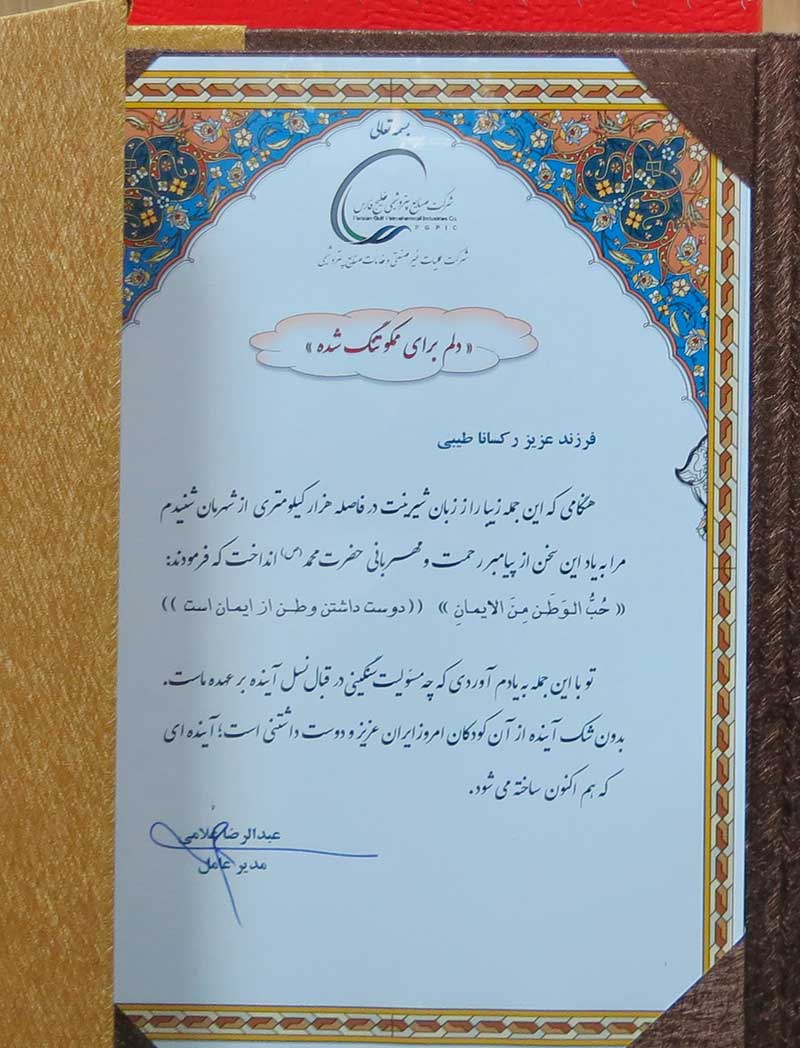 بسمه تعالی
شرکت صنایع پتروشیمی خلیج فارس
Persian Gulf Petrochemical Industries Co.
PGPIC
شرکت عملیات غیر صنعتی و خدمات صنایع پتروشیمی
« دلم برای ممکو تنگ شده »
فرزند عزیز رکسانا طیبی
هنگامی که این جمله زیبا را از زبان شیرینت در فاصله هزار کیلومتری از شهرمان شنیدم
مرا به یاد این سخن از پیامبر رحمت و مهربانی حضرت محمد (ص) انداخت که فرمودند:
« حُبُّ الوَطَن مِنَ الایمانِ » ((دوست داشتن وطن از ایمان است ))
تو با این جمله به یادم آوردی که چه مسؤلیت سنگینی در قبال نسل آینده بر عهده ماست.
بدون شک آینده از آن کودکان امروز ایران عزیز و دوست داشتنی است؛ آینده ای
که هم اکنون ساخته می شود.
عبدالرضا غلامی
مدیر عامل